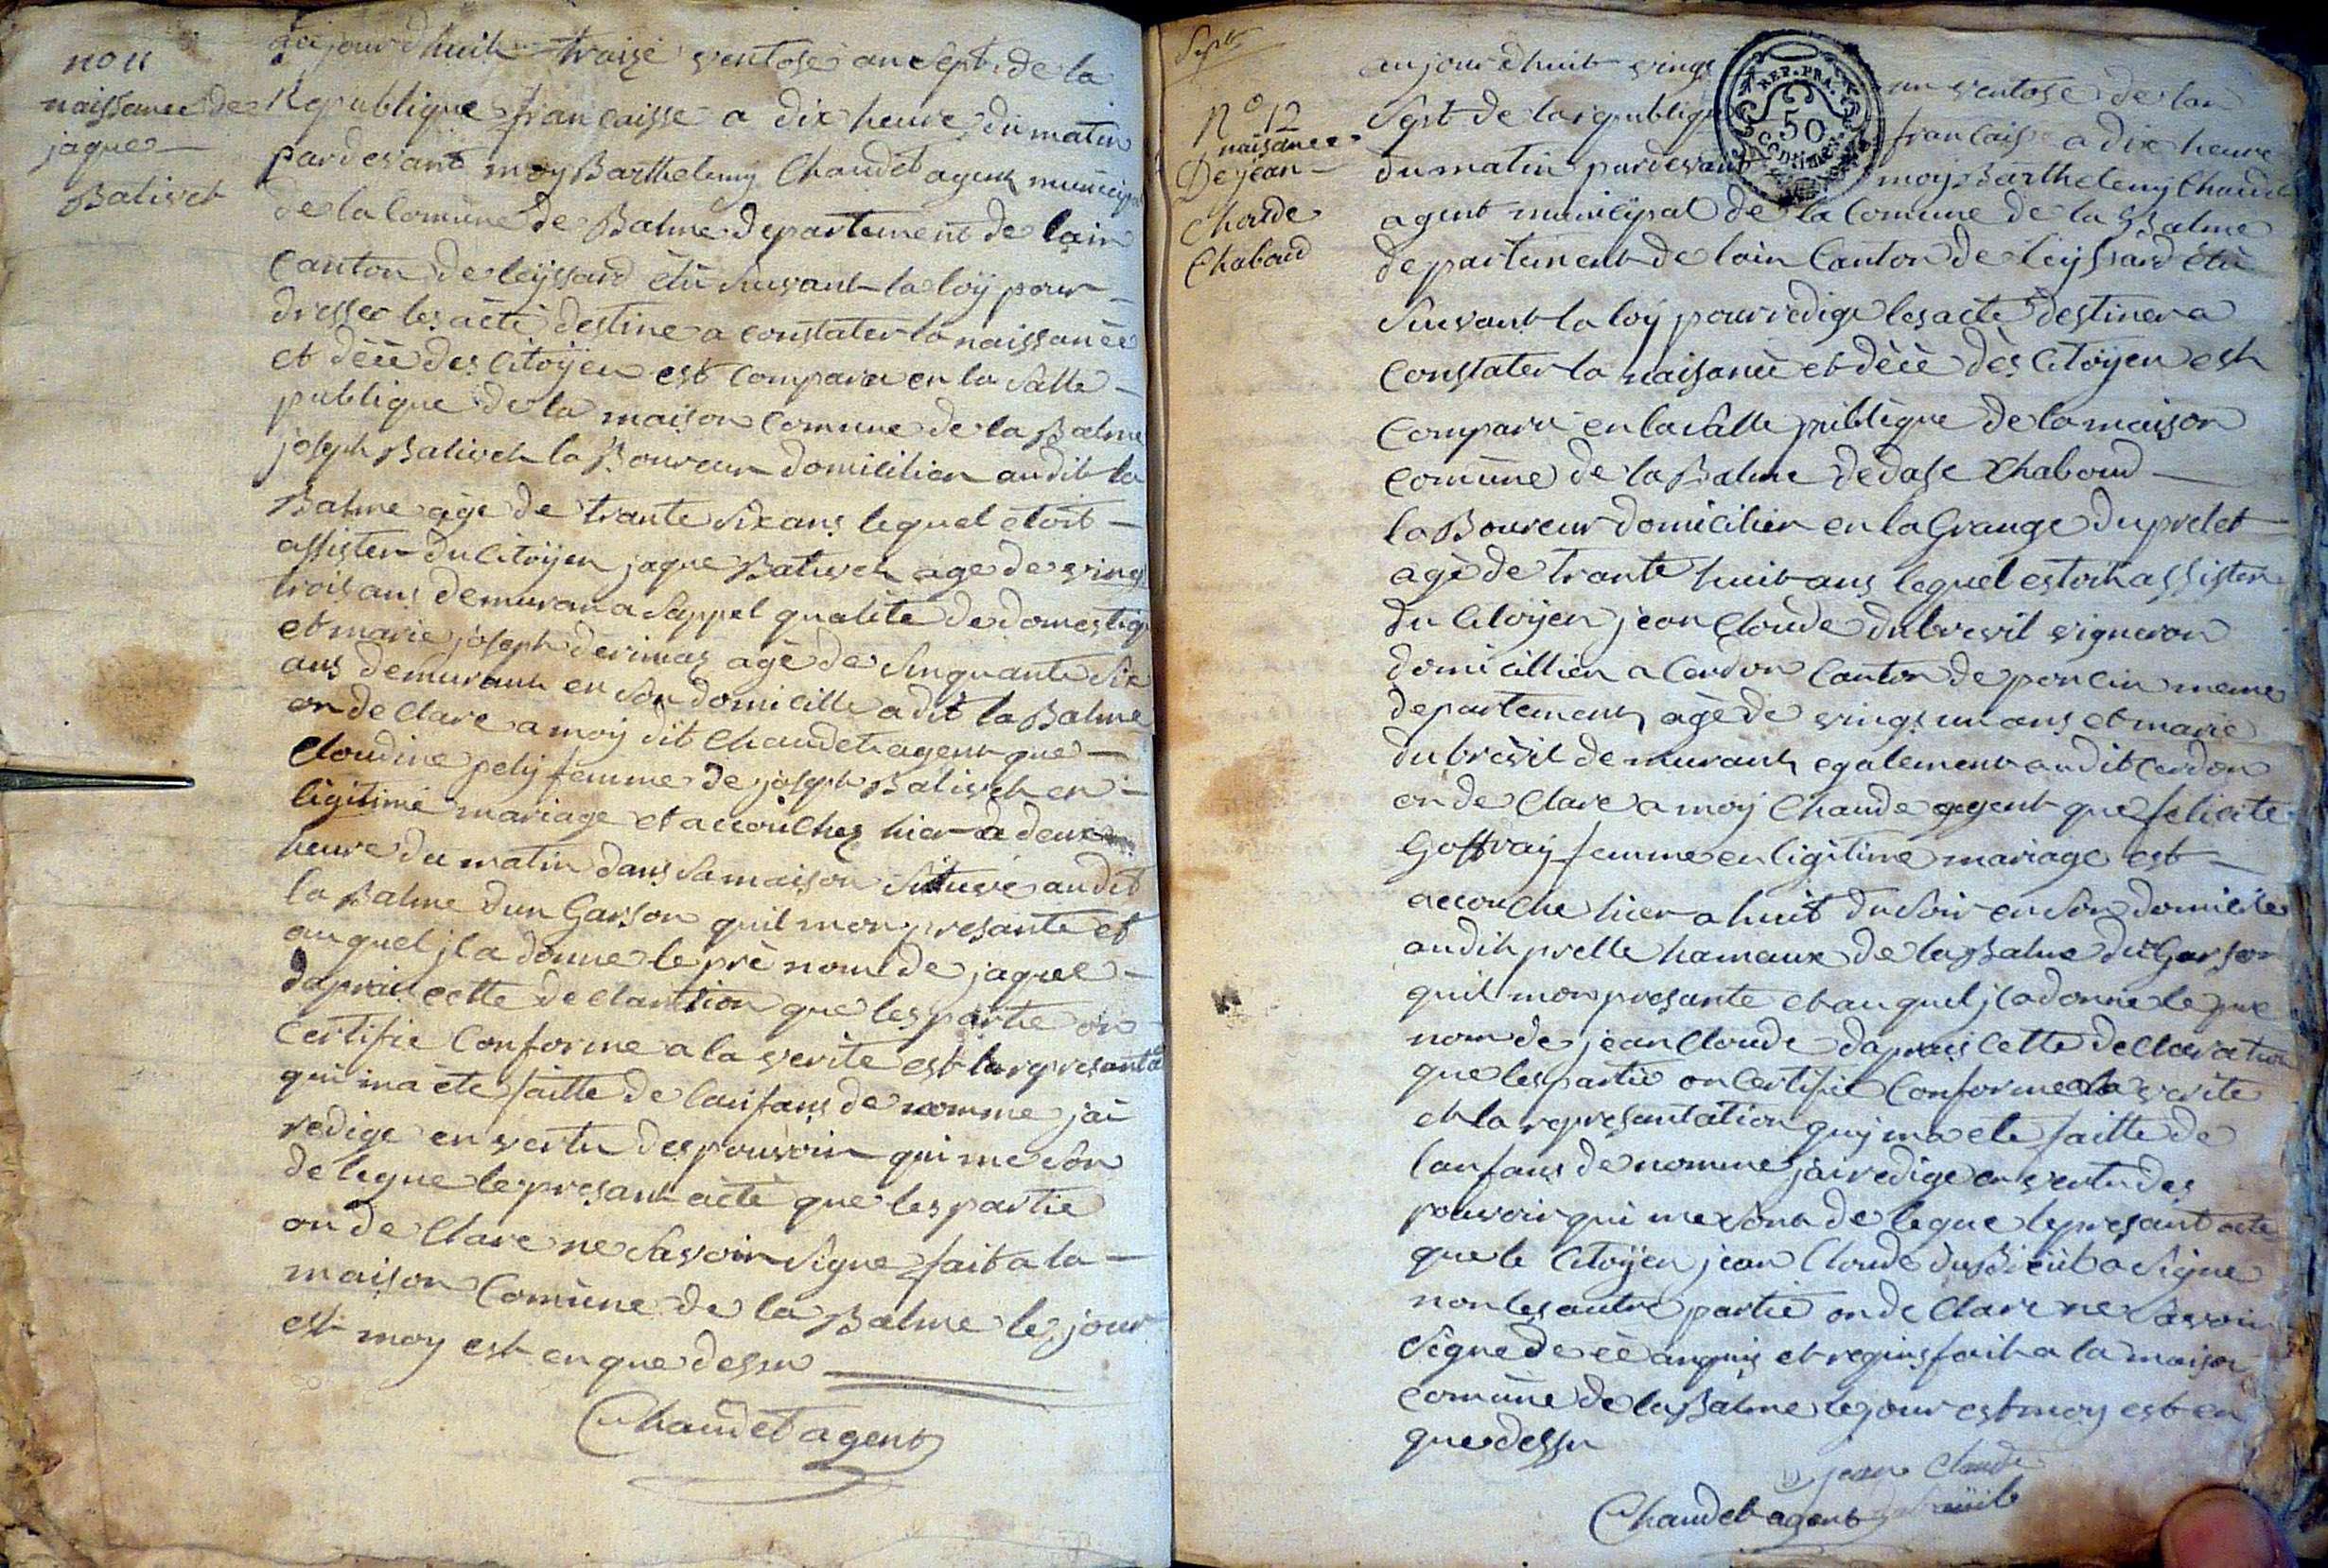 no 11
naissance de
jaque
Balivet
aujourdhuit traize ventose an sept de la
Republique francaisse a dix heure du matin
pardevant moy Barthelemy Chaudet agent municipal
de la Comune de Balme departement de lain
Canton de leyssard élû suivant la loÿ pour
dresser les acte destine a constater la naissance
et décè des Citoÿen est comparu en la salle
publique de la maison Comune de la Balme
joseph Balivet la Boureur domicilier audit la
Balme age de trante six ans lequel etoit
assister du Citoÿen jaque Balivet age de vingt
trois ans demuran a Sappel qualite de domestiq
et marie joseph derimas agè de sinquante six
ans demurant en son domicille adit la Balme
on de Clare a moÿ dit Chaudet agent que
Cloudine pely femme de joseph Balivet en
ligitime mariage et accouchez hier a deux
heure du matin dans sa maison situve audit
la Balme dun Garson quil mon presante et
auquel jl a donne le prè nom de jaque
daprai cette declaration que les partie on
Certifie Conforme a la verite est la represantat
qui ma ète faitte de lanfans de nomme jai
redige en vertu des pouvoir qui me son
delegue le presant acte que les partie
on de Clare ne savoir signe fait a la
maison Comune de la Balme le jour
est moy est en que dessu
Chaudet agent
Sept
No 12
naisance
De jean
Cloude
Chaboud
aujourdhuit vingt un ventose de lan
Sept de la republique francaise a dix heure
REP. FRA.
50
Centimes
du matin pardevant moy Barthelemy Chaudet
agent municipal de la Comune de la Balme
departement de lain Canton de leyssard élû
suivant la loÿ pour redige les acte destiner a
Constater la naisance et décè dès Citoÿen est
Comparu en la salle publique de la maison
Comune de la Balme dedase Chaboud
la Boureur domicilier en la Grange du prelet
agè de trante huit ans lequel estoit assister
du Citoÿen jean Cloude dubrevil vigneron
domicillier a Cerdon Canton de poncin meme
departement agè de vingt un ans et marie
dubrèvil demurant egalement audit Cerdon
on de Clare a moy Chaude agent que felicite
Goffray femme en ligitime mariage est
accouche hier a huit du soir en son domicile
audit prelle hameaux de la Balme du Garson
quil mon presante et auquel jl a donne le pre
nom de jean Cloude daprais cette declaration
que les partie on Certifie Conforme a la verite
et la represantation quy ma ete faitte de
lanfans de nomme jai redige en vertu des
pouvoir qui me sont delegue le presant acte
que le Citoÿen jean Cloude duBreüil a signe
non les autre partie on de Clare ne savoir
signe de cè anquis et requis fait a la maison
Comune de la Balme le jour est moy est en
que dessu
jean Claude
Chaudet agent dubreüil